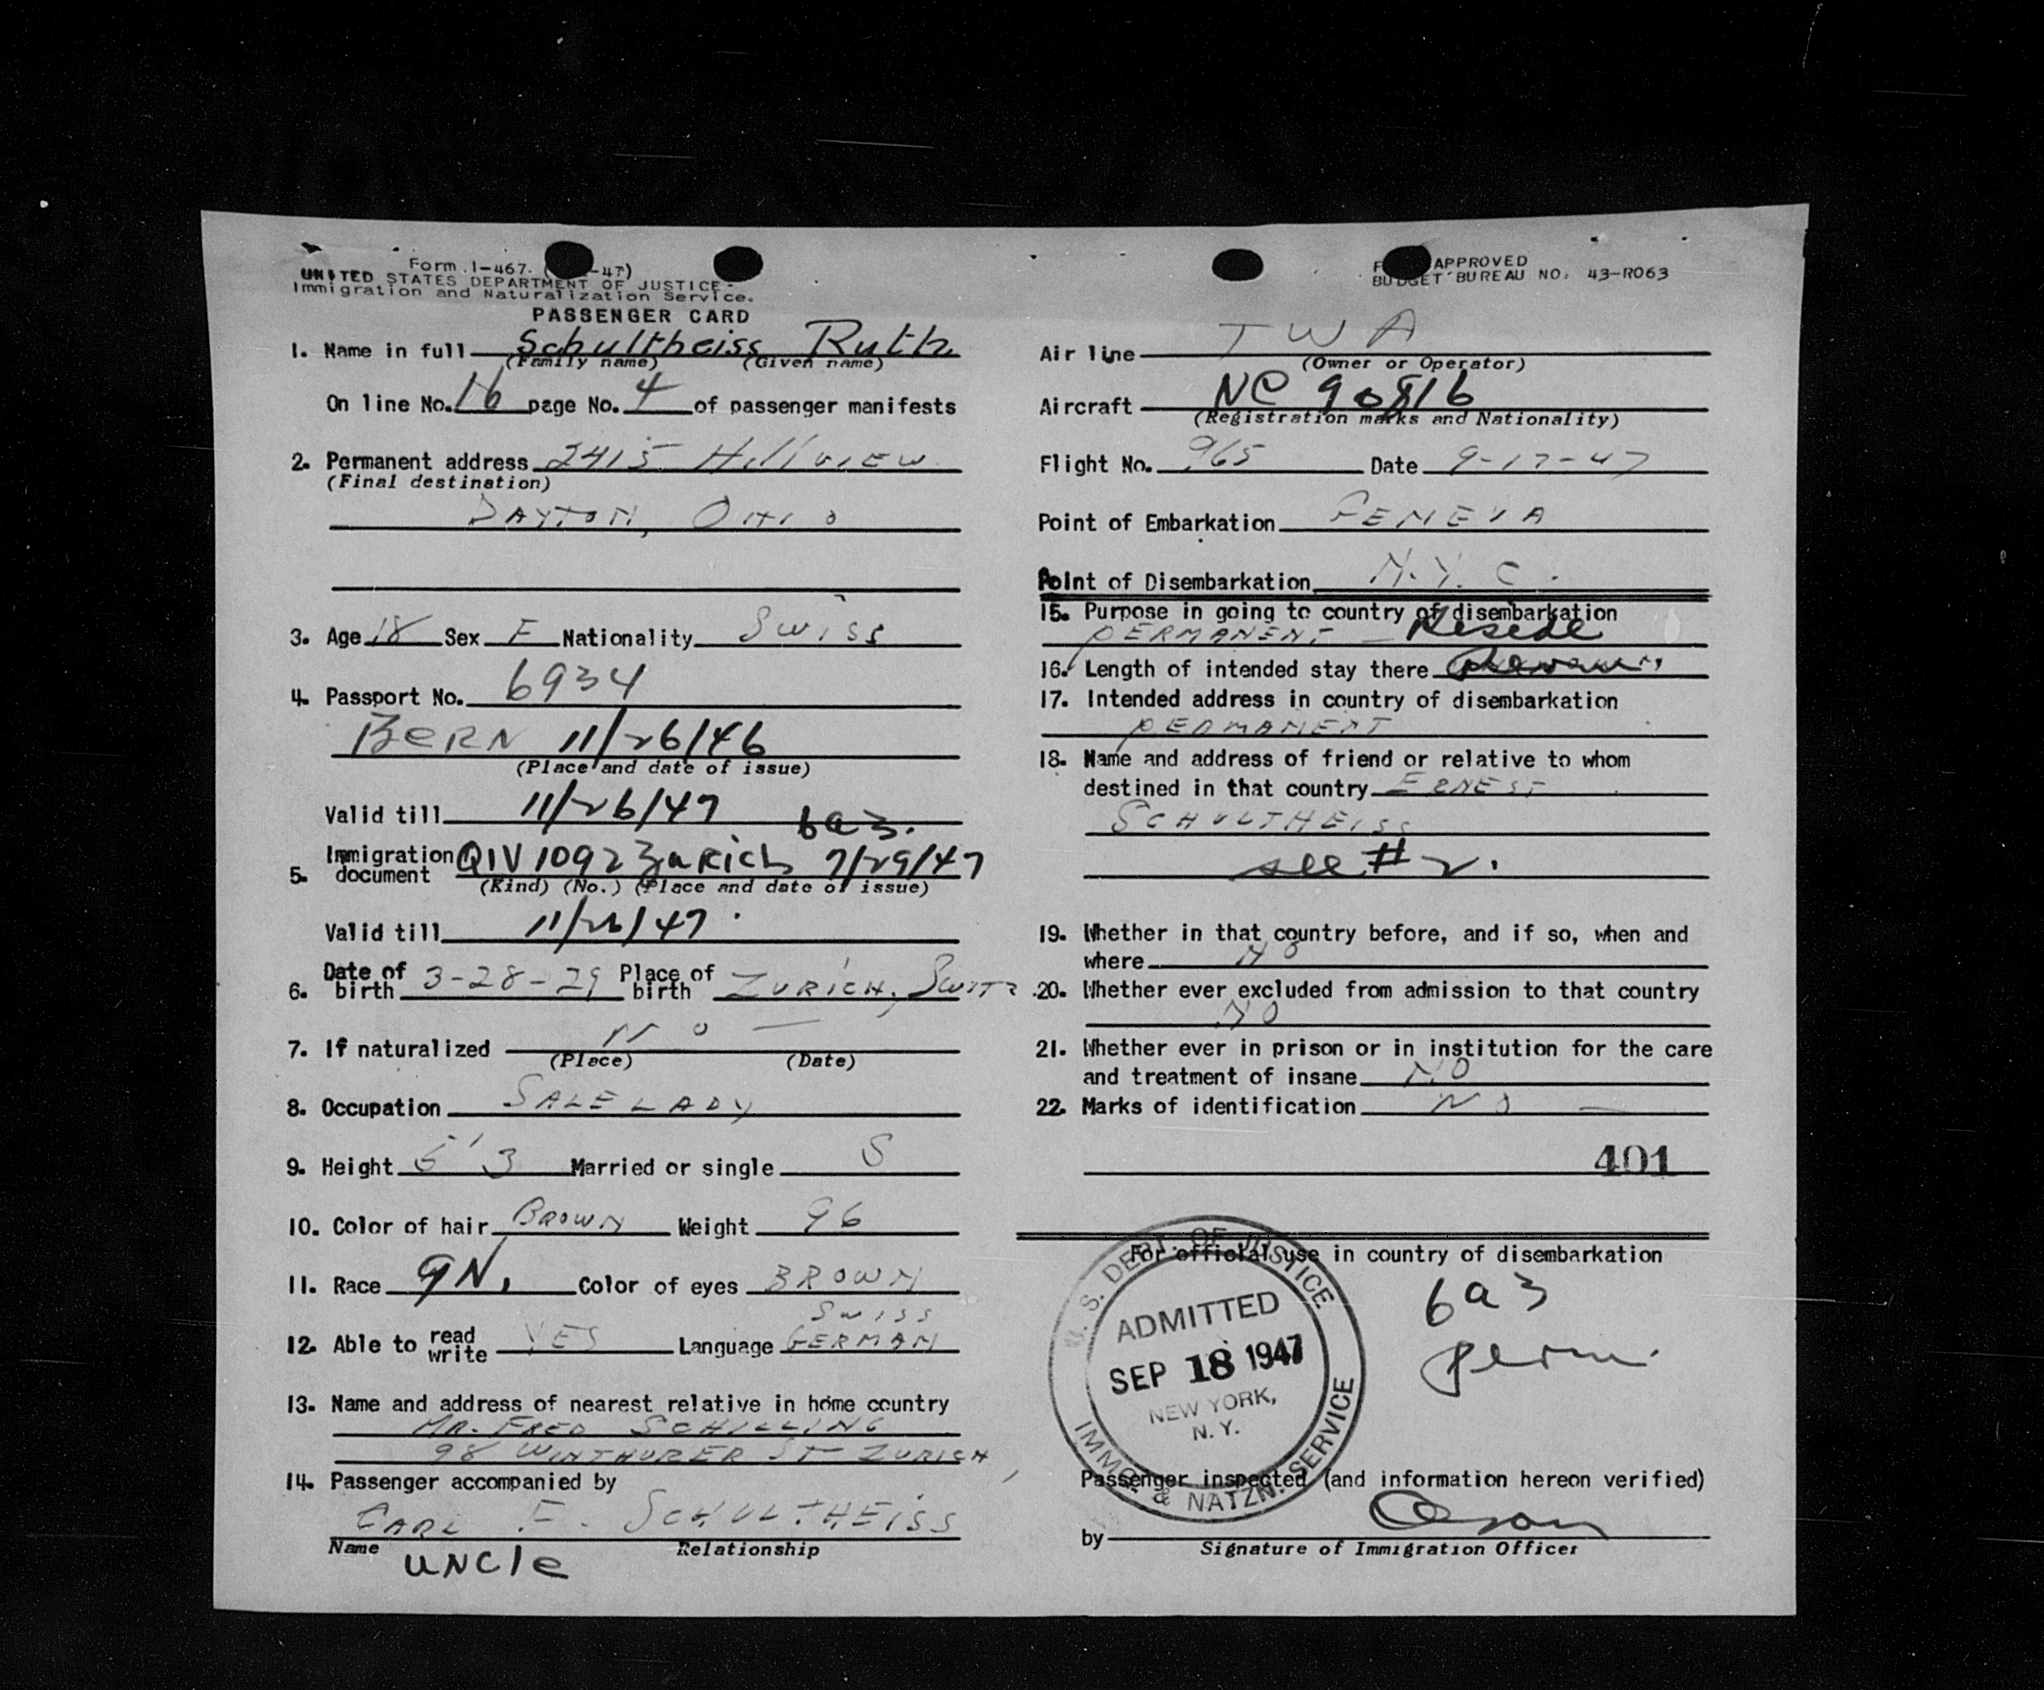 Form I-467. ( -47)
UNITED STATES DEPARTMENT OF JUSTICE-
Immigration and Naturalization Service.
PASSENGER CARD
1. Name in full Schultheiss Ruth
(Family name) (Given name)
On line No. 16 page No. 4 of passenger manifests
2. Permanent address 2415 Hillview
(Final destination)
DAYTON, OHIO
3. Age 18 Sex F Nationality Swiss
4. Passport No. 6934
BERN 11/26/46
(Place and date of issue)
Valid till 11/26/47
6a3.
5. Immigration document QIV 1092 Zurich 7/29/47
(Kind) (No.) (Place and date of issue)
Valid till 11/26/47
6. Date of birth 3-28-29 Place of birth ZURICH, SWITZ.
7. If naturalized NO —
(Place) (Date)
8. Occupation SALELADY
9. Height 5'3 Married or single S
10. Color of hair BROWN Weight 96
11. Race GN. Color of eyes BROWN
12. Able to read write YES Language SWISS GERMAN
13. Name and address of nearest relative in home country
MR. FRED SCHILLING
98 WINTHURER ST ZURICH
14. Passenger accompanied by
CARL F. SCHULTHEISS
Name Relationship
UNCle
APPROVED
BUDGET BUREAU NO. 43-R063
Air line TWA
(Owner or Operator)
Aircraft NC 90816
(Registration marks and Nationality)
Flight No. 965 Date 9-17-47
Point of Embarkation GENEVA
Point of Disembarkation N.Y.C.
15. Purpose in going to country of disembarkation
PERMANENT - Reside
16. Length of intended stay there
17. Intended address in country of disembarkation
PERMANENT
18. Name and address of friend or relative to whom
destined in that country ERNEST
SCHULTHEISS
see # 2.
19. Whether in that country before, and if so, when and
where NO
20. Whether ever excluded from admission to that country
NO
21. Whether ever in prison or in institution for the care
and treatment of insane NO
22. Marks of identification NO —
401
For official use in country of disembarkation
6a3
perm.
U. S. DEPT. OF JUSTICE
ADMITTED
SEP 18 1947
NEW YORK,
N. Y.
IMMG. & NATZN. SERVICE
Passenger inspected (and information hereon verified)
by
Signature of Immigration Officer